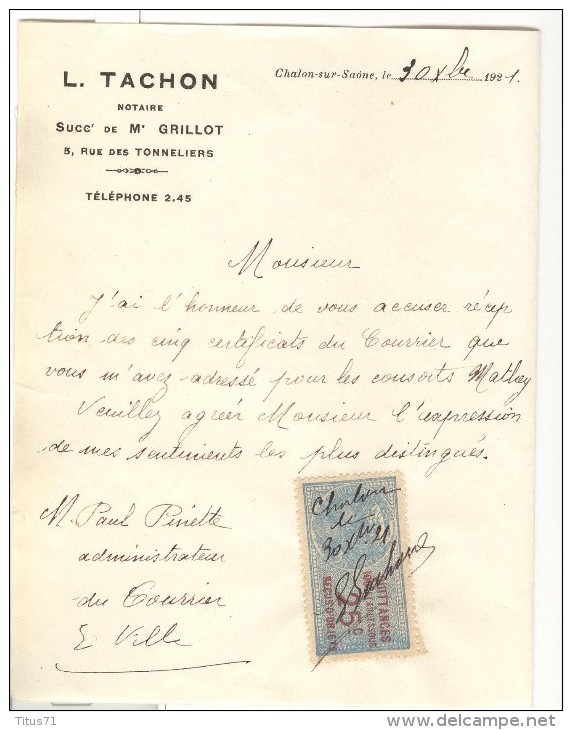 L. TACHON
NOTAIRE
Succr DE Mr GRILLOT
5, RUE DES TONNELIERS
TÉLÉPHONE 2.45
Chalon-sur-Saône, le 30 Xbre 1921.
Monsieur
J'ai l'honneur de vous accuser récep
tion des cinq certificats du Courrier que
vous m'avez adressé pour les consorts Mathey
Veuillez agréer Monsieur l'expression
de mes sentiments les plus distingués.
M. Paul Pinette
administrateur
du Courrier
E Ville
Chalon
le
30 Xbre 21
LTachon
QUITTANCES
25c
Titus71
delcampe.net